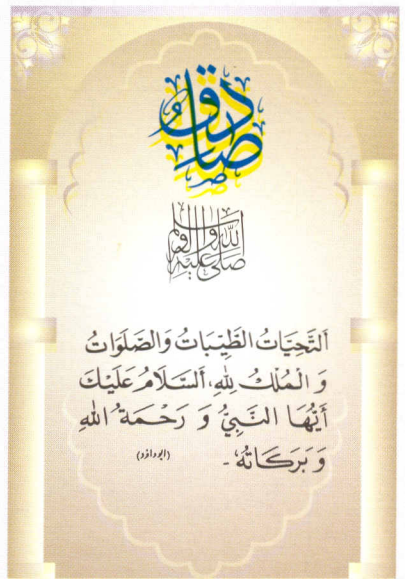 صادق
صلى الله عليه وآله وسلم
اَلتَّحِيَّاتُ الطَّيِّبَاتُ وَالصَّلَوَاتُ
وَ الْمُلْكُ لِلّٰهِ، اَلسَّلَامُ عَلَيْكَ
أَيُّهَا النَّبِيُّ وَ رَحْمَةُ اللهِ
وَ بَرَكَاتُهٗ - (ابوداؤد)